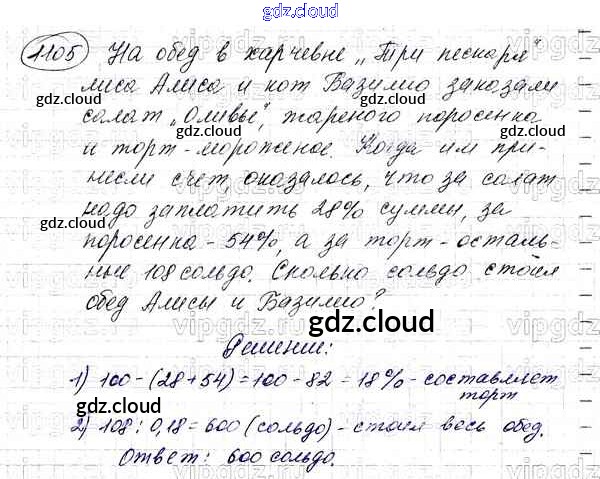 gdz.cloud
1105 На обед в харчевне „Три пескаря"
лиса Алиса и кот Базилио заказали
gdz.cloud gdz.cloud
салат „Оливье", жареного поросенка
и торт-мороженое. Когда им при-
несли счет, оказалось, что за салат
gdz.cloud gdz.cloud
надо заплатить 28% суммы, за
поросенка - 54%, а за торт - осталь-
ные 108 сольдо. Сколько сольдо стоил
gdz.cloud gdz.cloud
обед Алисы и Базилио?
gdz.cloud
Решение:
1) 100 - (28 + 54) = 100 - 82 = 18% - составляет
торт
gdz.cloud gdz.cloud
2) 108 : 0,18 = 600 (сольдо) - стоил весь обед.
Ответ: 600 сольдо.
gdz.cloud gdz.cloud